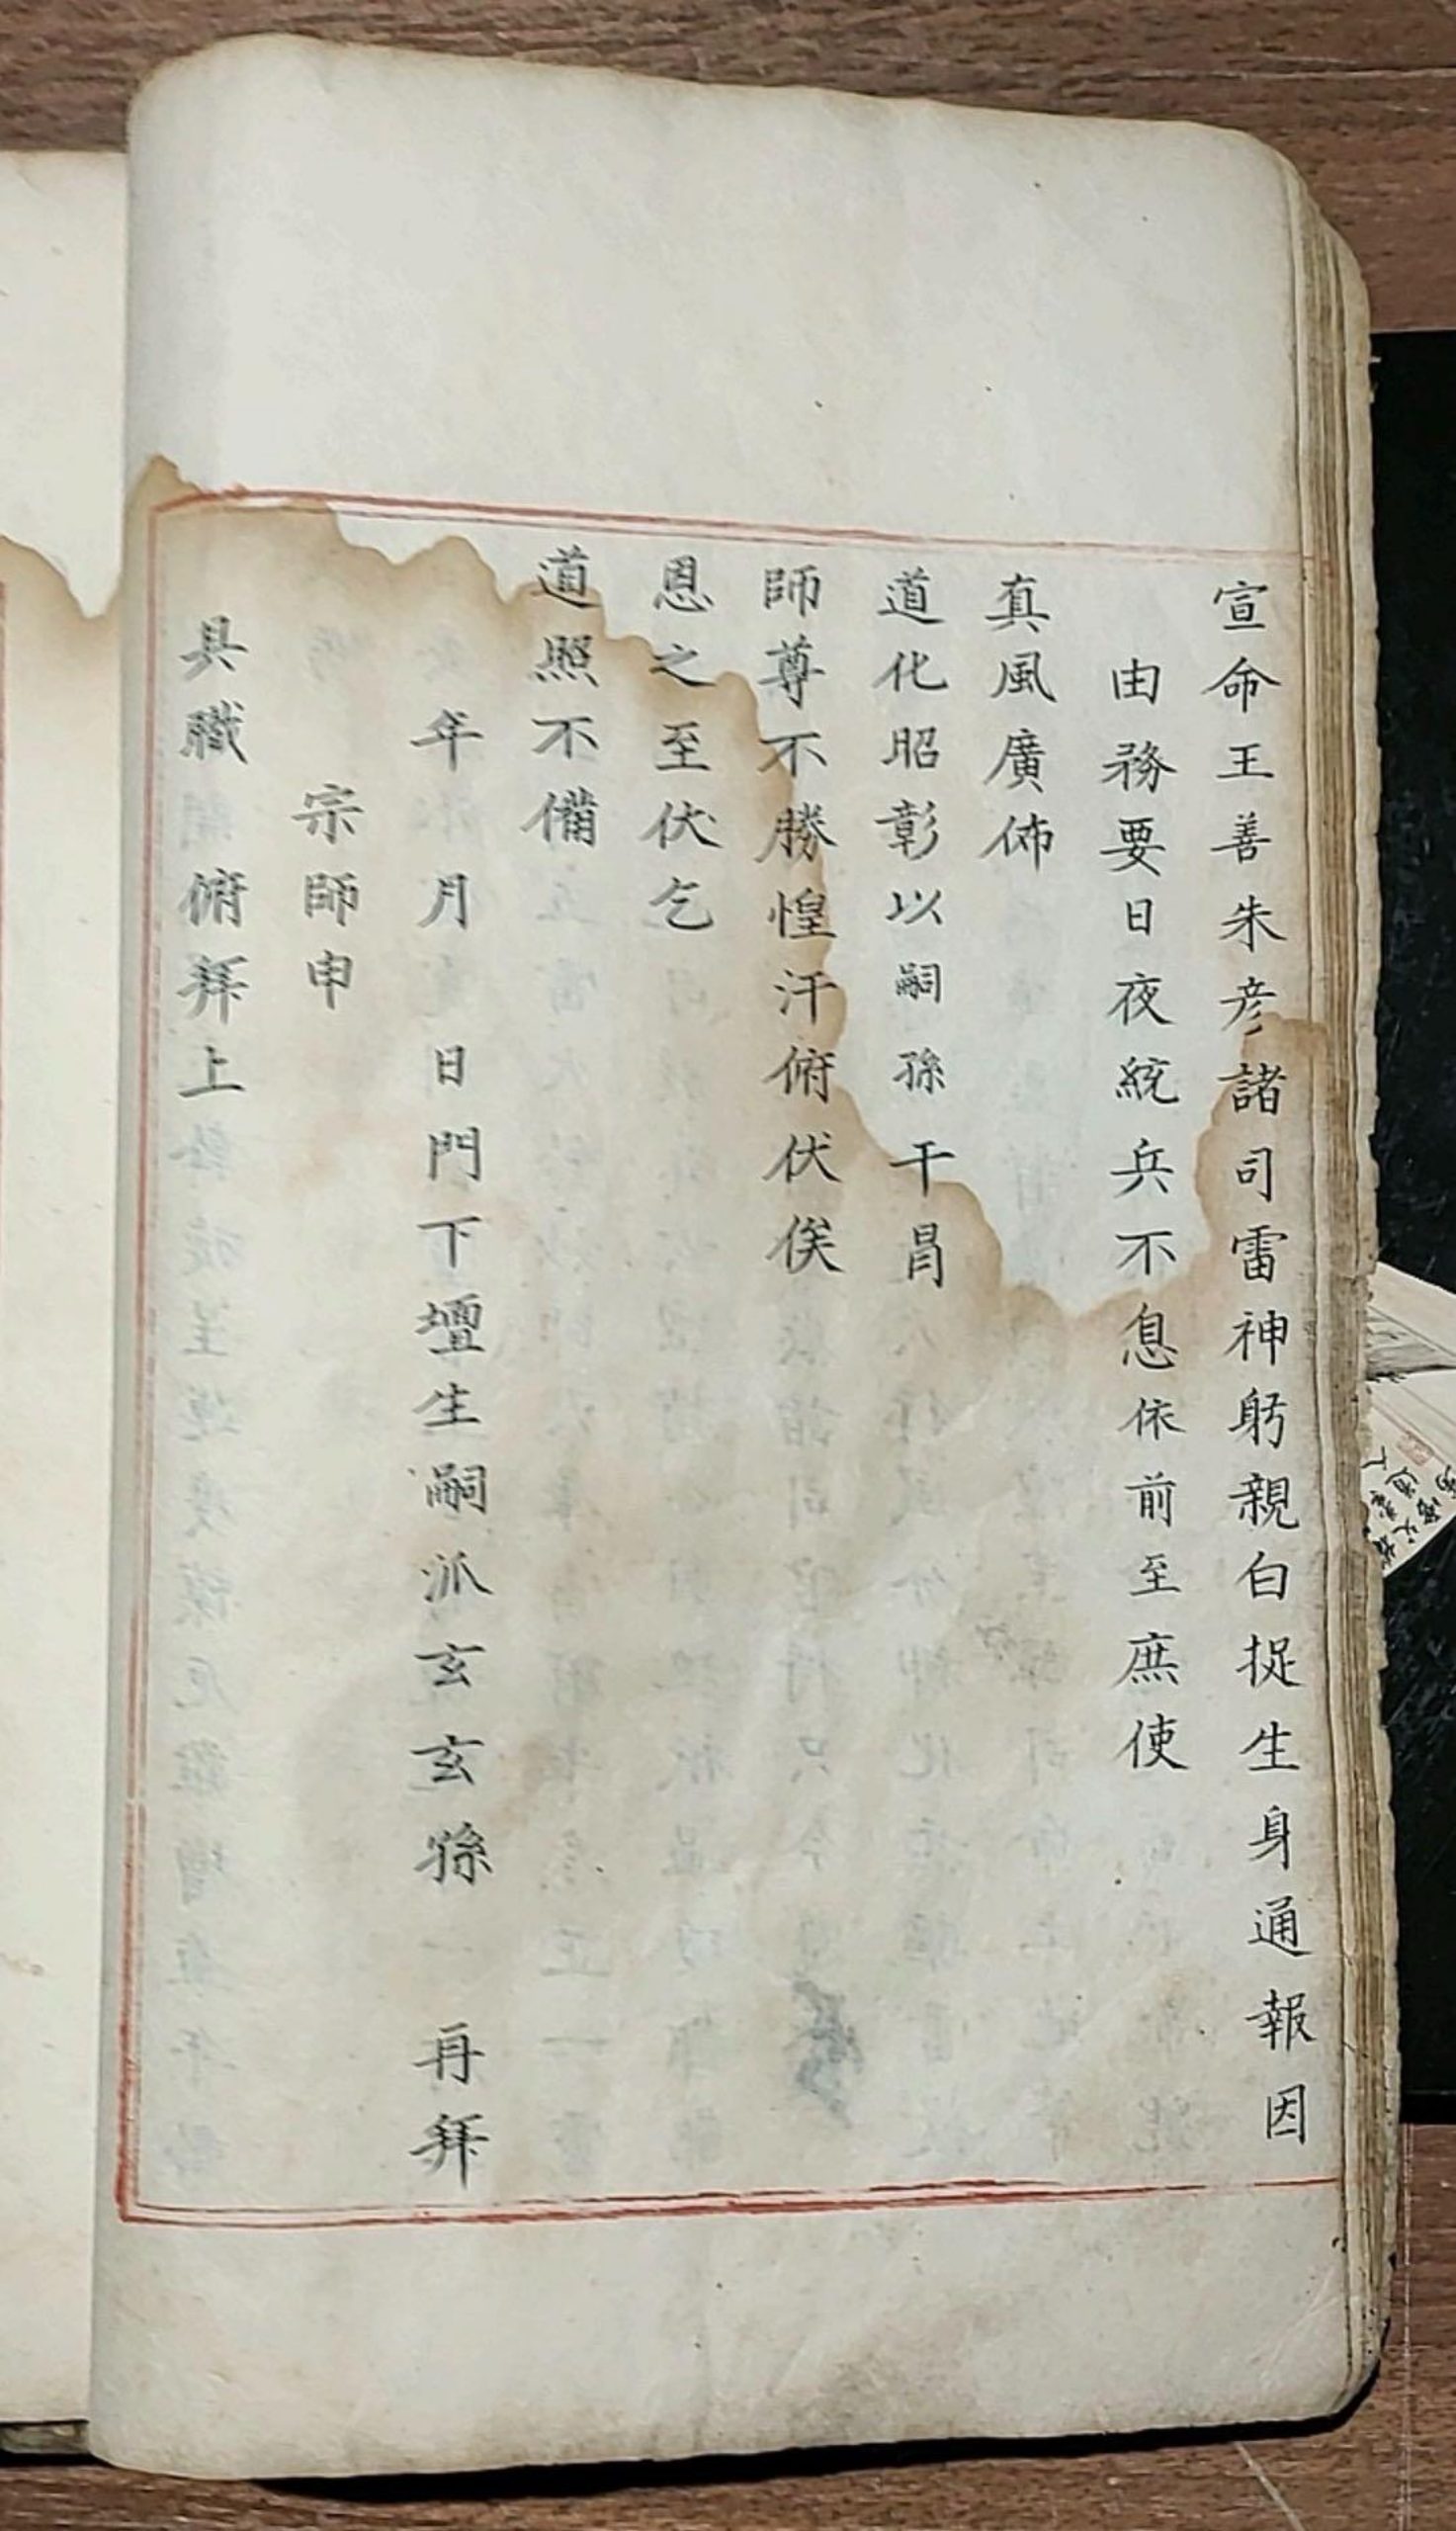 宣命王善朱彦諸司雷神躬親白捉生身通報因
由務要日夜統兵不息依前至庶使
真風廣佈
道化昭彰以嗣孫干冐
師尊不勝惶汗俯伏俟
恩之至伏乞
道照不備
年月日門下壇生嗣派玄玄孫一再拜
宗師申
具職俯拜上